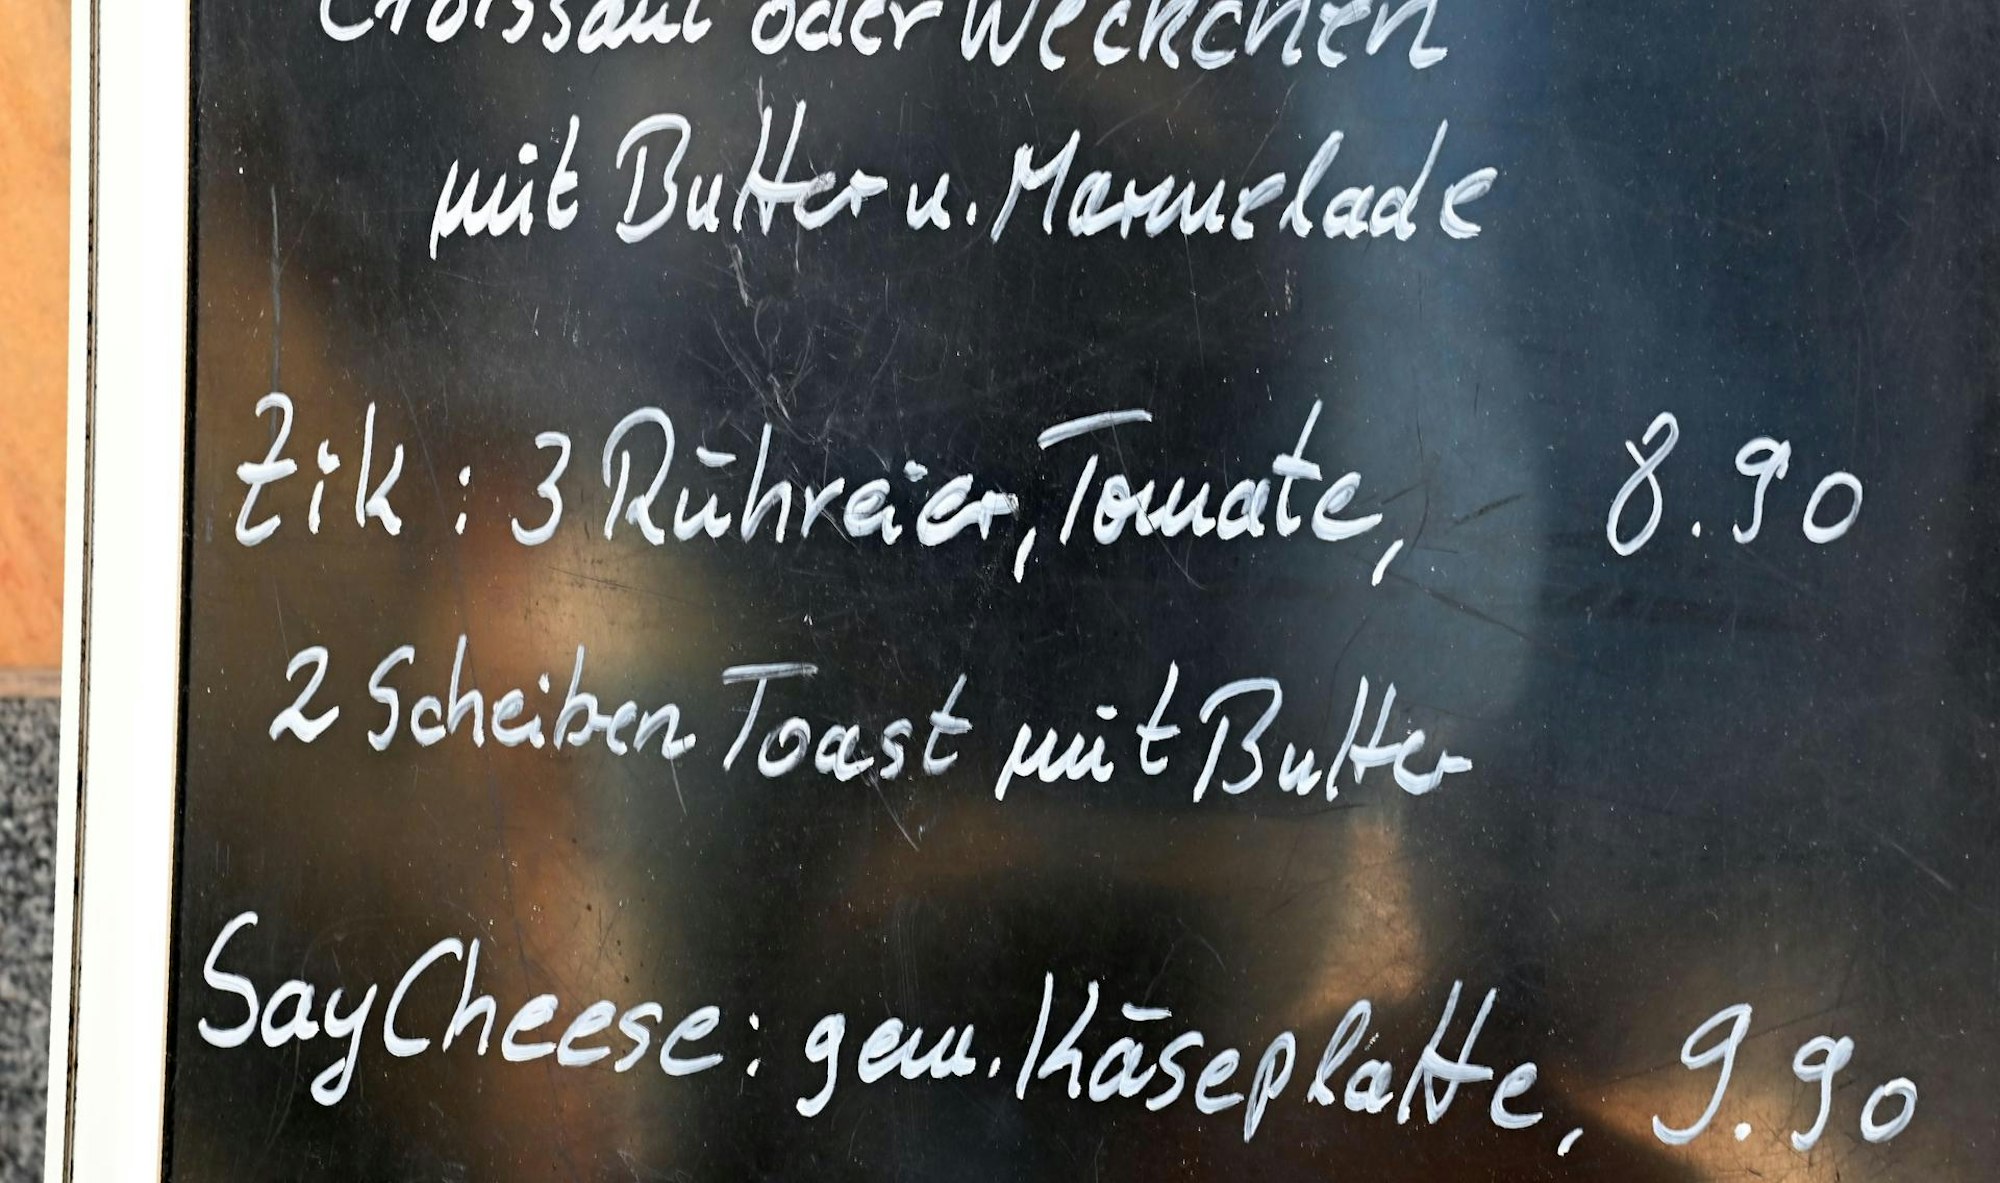 Croissant oder Weckchen
mit Butter u. Marmelade
Zik : 3 Rühreier, Tomate, 8.90
2 Scheiben Toast mit Butter
Say Cheese : gem. Käseplatte, 9.90